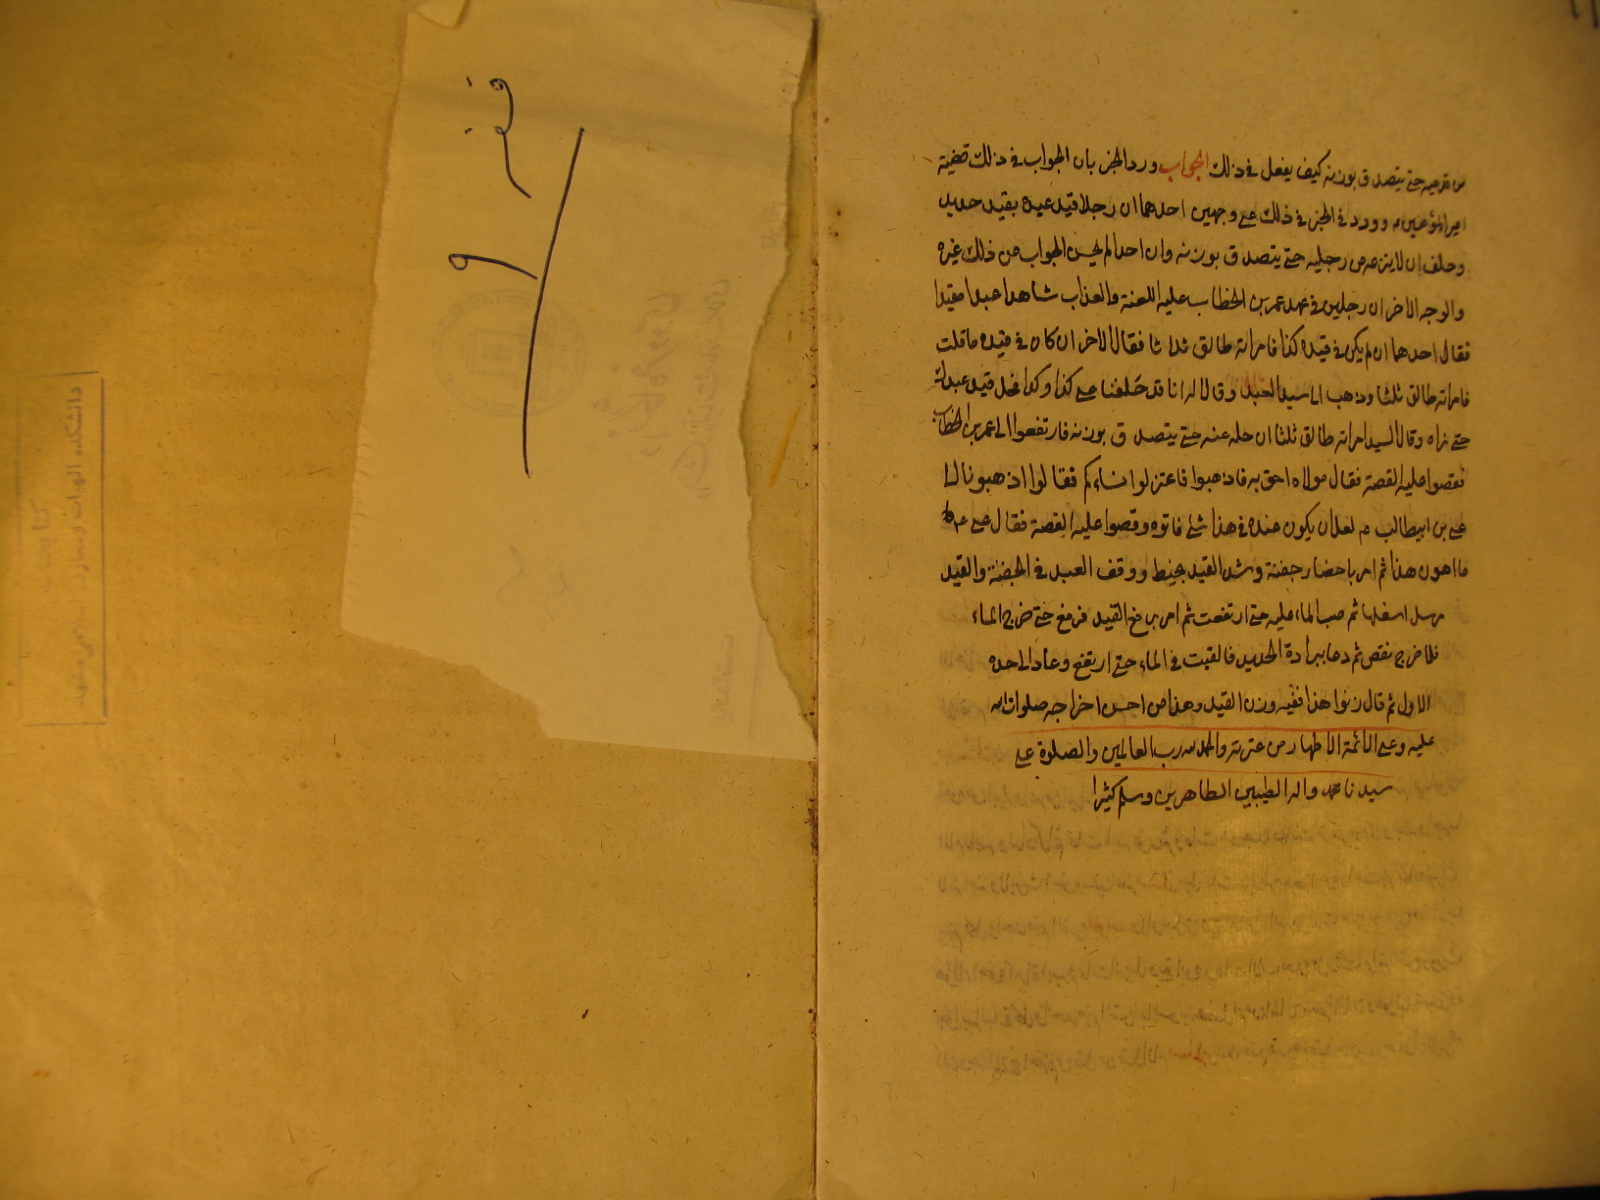 من قدميه حتى يتصدق بوزنه كيف يفعل في ذلك الجواب ورد الخبر بان الجواب في ذلك قضية
امير المؤمنين م وورد في الخبر في ذلك على وجهين احدهما ان رجلا قيد عبده بقيد حديد
وحلف ان لا ينزعه من رجليه حتى يتصدق بوزنه وان احدا لم يحسن الجواب عن ذلك غيره
والوجه الاخر ان رجلين في عهد عمر بن الخطاب عليه اللعنة والعذاب شاهدا عبدا مقيدا
فقال احدهما ان لم يكن في قيده كذا فامراته طالق ثلاثا فقال الاخر ان كان في قيده ما قلت
فامراته طالق ثلثا وذهبا الى سيد العبد وقالا له انا قد حلفنا على كذا وكذا فحل قيد عبدك
حتى نراه وقال السيد امراته طالق ثلثا ان حله عنه حتى يتصدق بوزنه فارتفعوا الى عمر بن الخطاب
فقصوا عليه القصة فقال مولاه احق به فاذهبوا فاعتزلوا نساءكم فقالوا اذهبونا الى
على بن ابيطالب م لعله ان يكون عنده في هذا شئ فاتوه وقصوا عليه القصة فقال على م
ما اهون هذا ثم امر باحضار جفنة وشد القيد بخيط ووقف العبد في الجفنة والقيد
مرسل اسفلها ثم صب الماء عليه حتى ارتفعت ثم امر برفع القيد فرفع حتى خرج الماء
فلما خرج نقص ثم دعا ببرادة الحديد فالقيت في الماء حتى ارتفع وعاد الى حده
الاول ثم قال زنوا هذا ففيه وزن القيد وهذا من احسن اخراجه صلوات الله
عليه وعلى الائمة الاطهار من عترته والحمد لله رب العالمين والصلوة على
سيدنا محمد واله الطيبين الطاهرين وسلم كثيرا
دانشكده الهيات ومعارف اسلامى مشهد